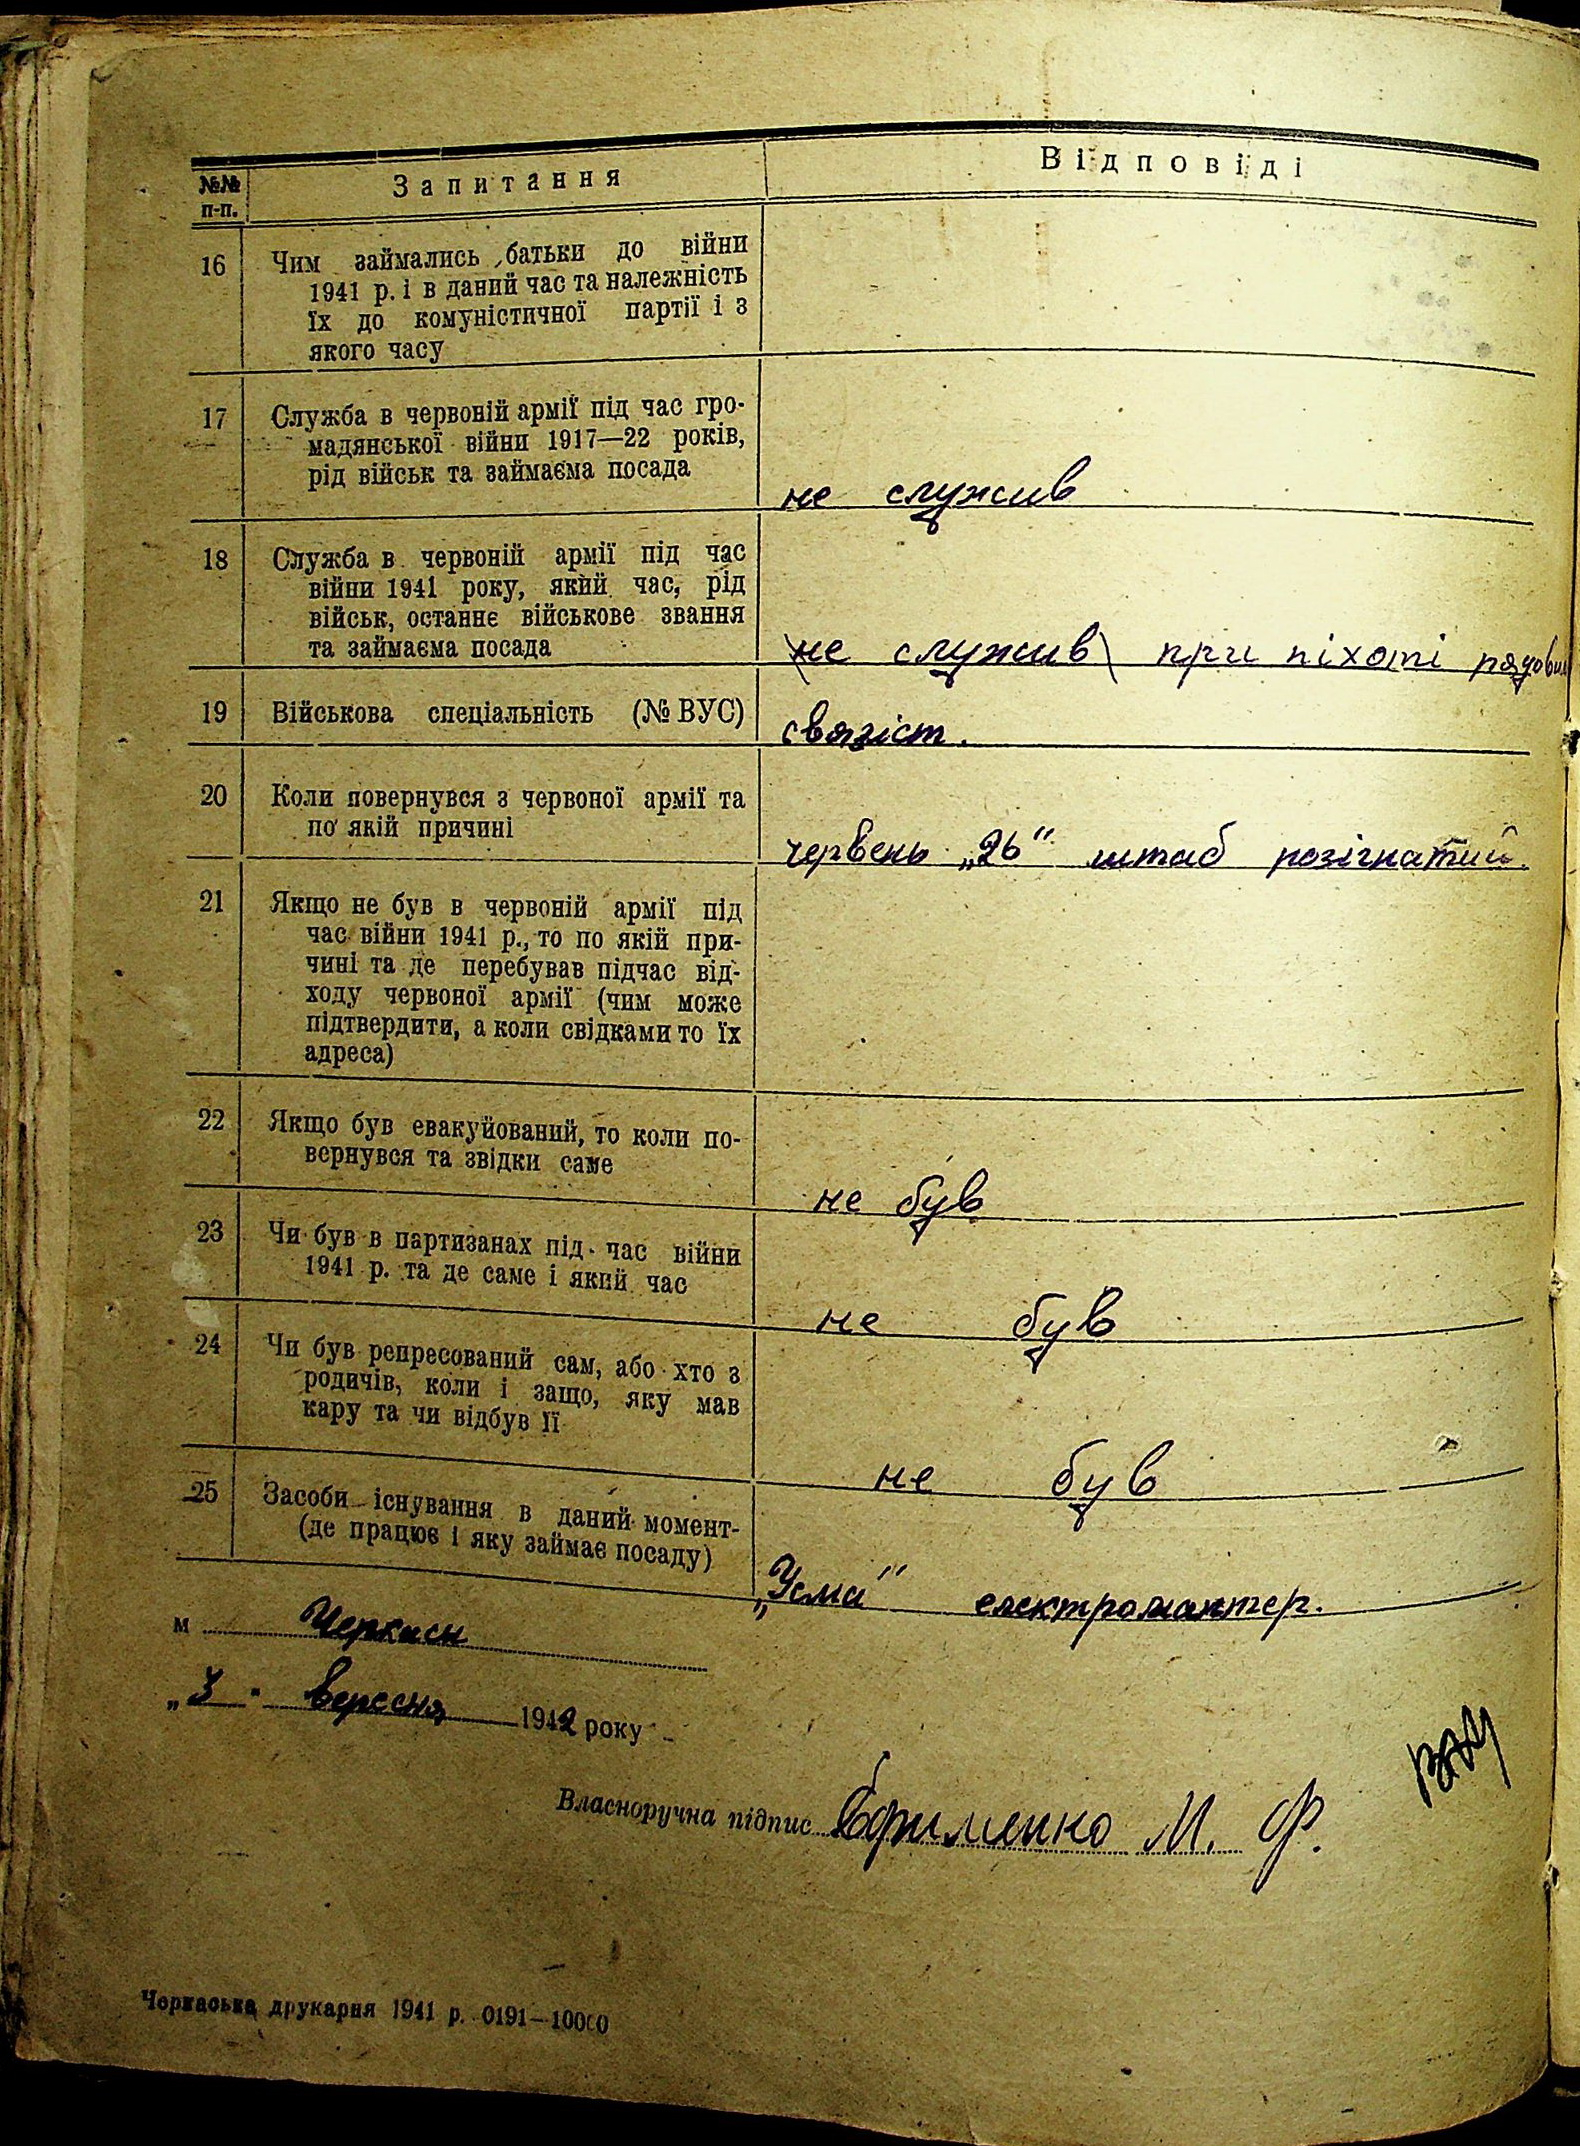 №№ п-п.
Запитання
Відповіді
16
Чим займались батьки до війни
1941 р. і в даний час та належність
їх до комуністичної партії і з
якого часу
17
Служба в червоній армії під час гро-
мадянської війни 1917—22 років,
рід військ та займаєма посада
не служив
18
Служба в червоній армії під час
війни 1941 року, який час, рід
військ, останнє військове звання
та займаєма посада
(не служив) при піхоті рядовим
19
Військова спеціальність (№ ВУС)
связіст.
20
Коли повернувся з червоної армії та
по якій причині
червень „26“ штаб розігнатий.
21
Якщо не був в червоній армії під
час війни 1941 р., то по якій при-
чині та де перебував підчас від-
ходу червоної армії (чим може
підтвердити, а коли свідками то їх
адреса)
22
Якщо був евакуйований, то коли по-
вернувся та звідки саме
не був
23
Чи був в партизанах під час війни
1941 р. та де саме і який час
не був
24
Чи був репресований сам, або хто з
родичів, коли і защо, яку мав
кару та чи відбув її
не був
25
Засоби існування в даний момент-
(де працює і яку займає посаду)
„Усма“ електромантер.
м Черкаси
„3" вересня 1942 року
Власноручна підпис Єфименко М. Ф.
Черкаська друкарня 1941 р. 0191—10000